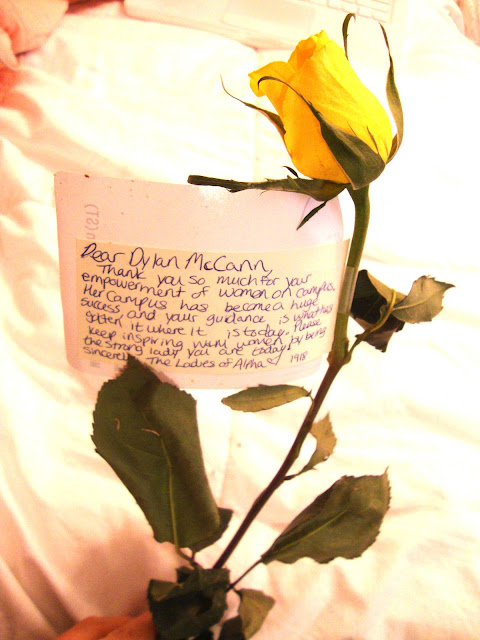 Dear Dylan McCann,
Thank you so much for your
empowerment of women on campus.
Her Campus has become a huge
success and your guidance is what has
gotten it where it is today. Please
keep inspiring women by being
the strong lady you are today!
Sincerely, The Ladies of Alpha ♡ 1918